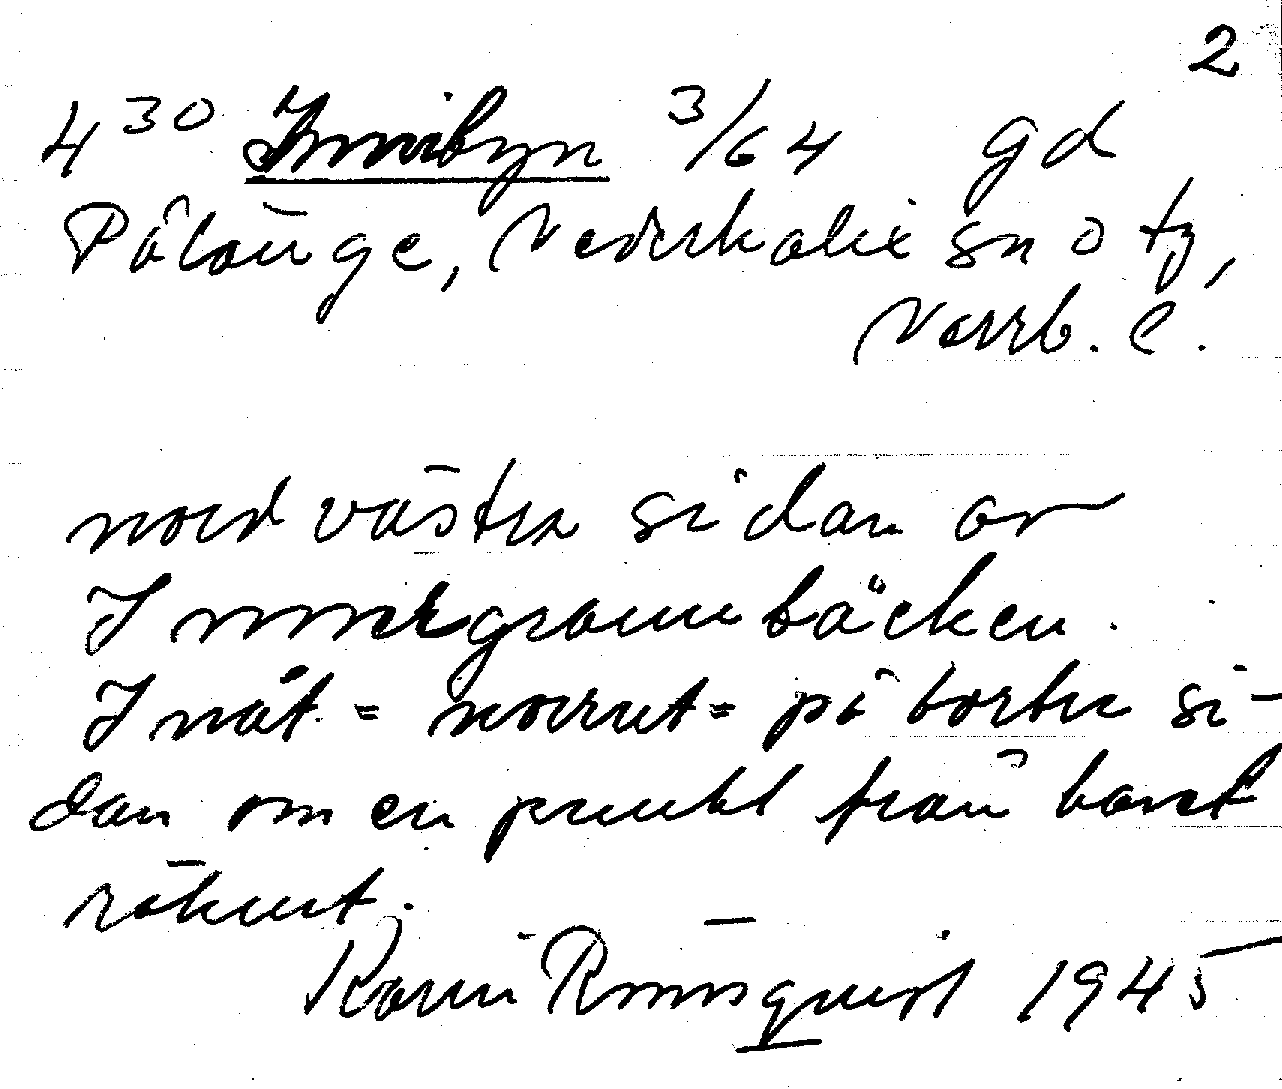 2
4³⁰ Innibyn 3/64 gd
Pålänge, Nederkalix sn o tg,
Norrb. l.
nordvästra sidan av
Innergrannbäcken.
Inåt = norrut = på bortre si-
dan om en punkt från havet
räknat.
Karin Rönnqvist 1945